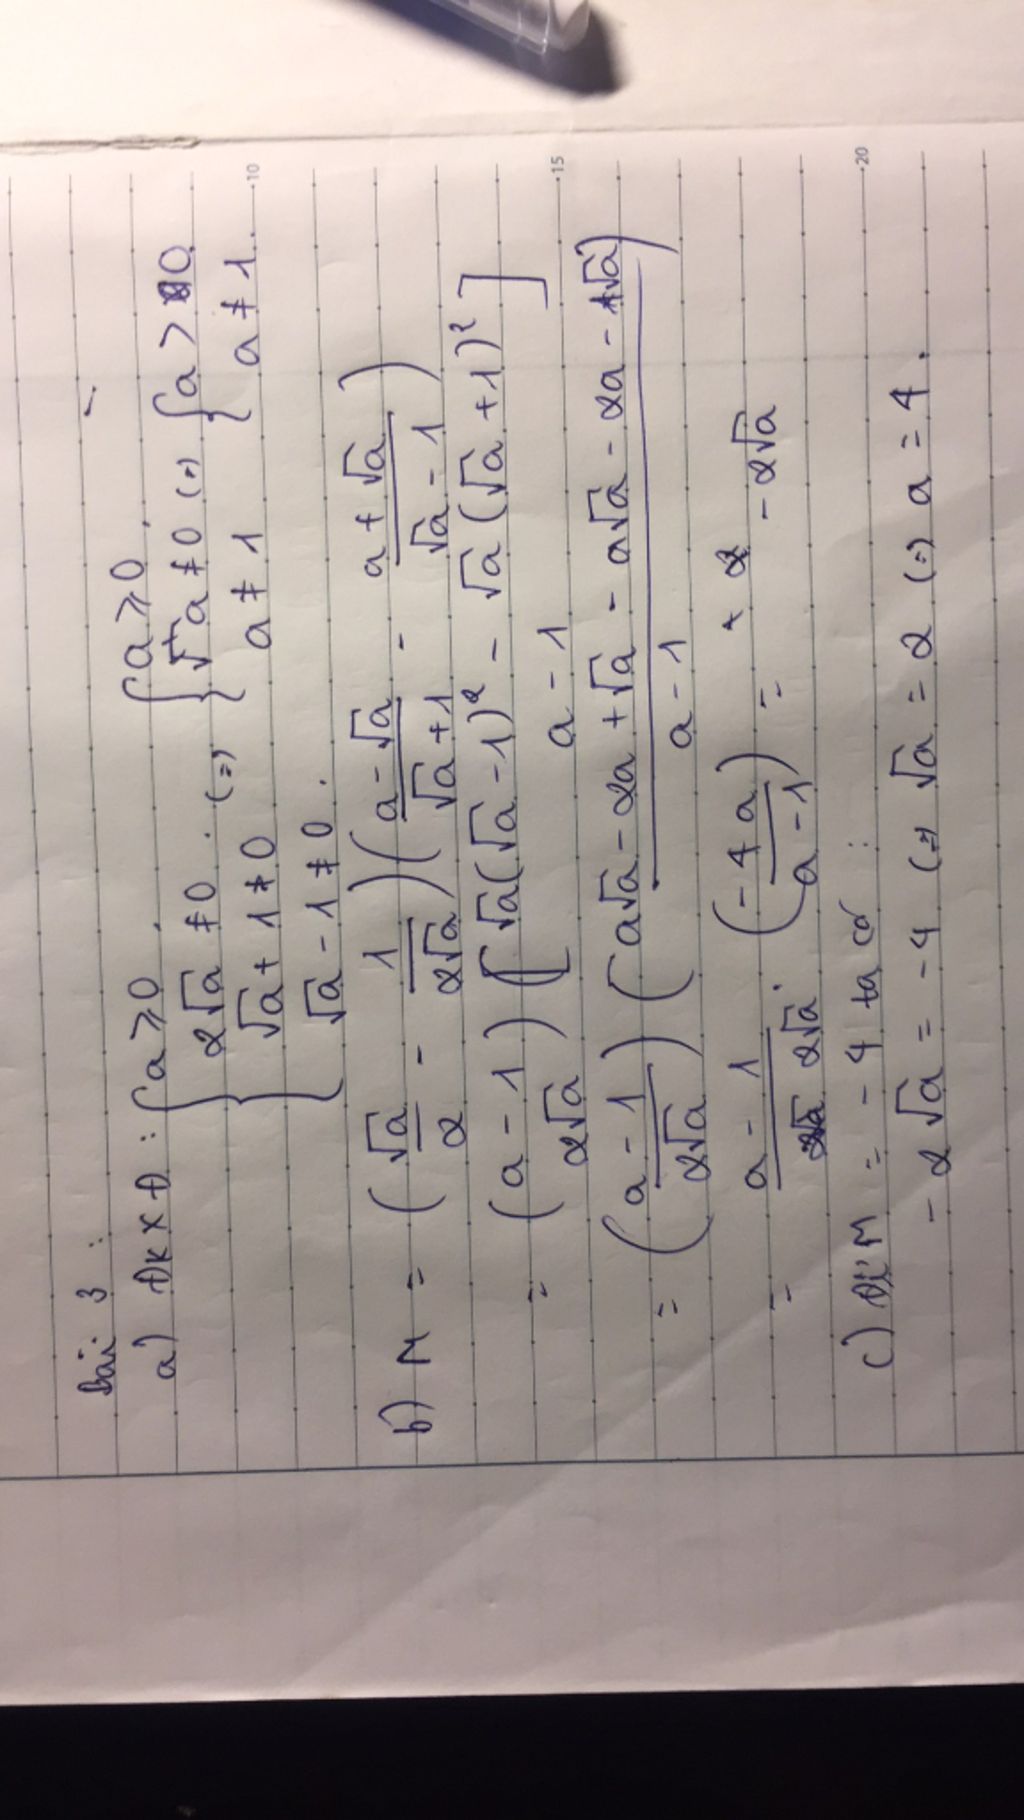 Bài 3 :
a) ĐKXĐ : { a ≥ 0 . 2√a ≠ 0 . √a + 1 ≠ 0 √a - 1 ≠ 0 . (=) { a ≥ 0 . √a ≠ 0 a ≠ 1 (=) { a > 0 a ≠ 1 .
b) M = (√a/2 - 1/2√a)((a - √a)/(√a + 1) - (a + √a)/(√a - 1))
= (a - 1)/(2√a) [√a(√a - 1)² - √a(√a + 1)²]/(a - 1)
= ((a - 1)/(2√a)) ((a√a - 2a + √a - a√a - 2a - √a)/(a - 1))
= (a - 1)/(2√a) . (-4a/(a - 1)) = - 2√a
c) Để M = - 4 ta có :
- 2√a = - 4 (=) √a = 2 (=) a = 4 .
10
15
20